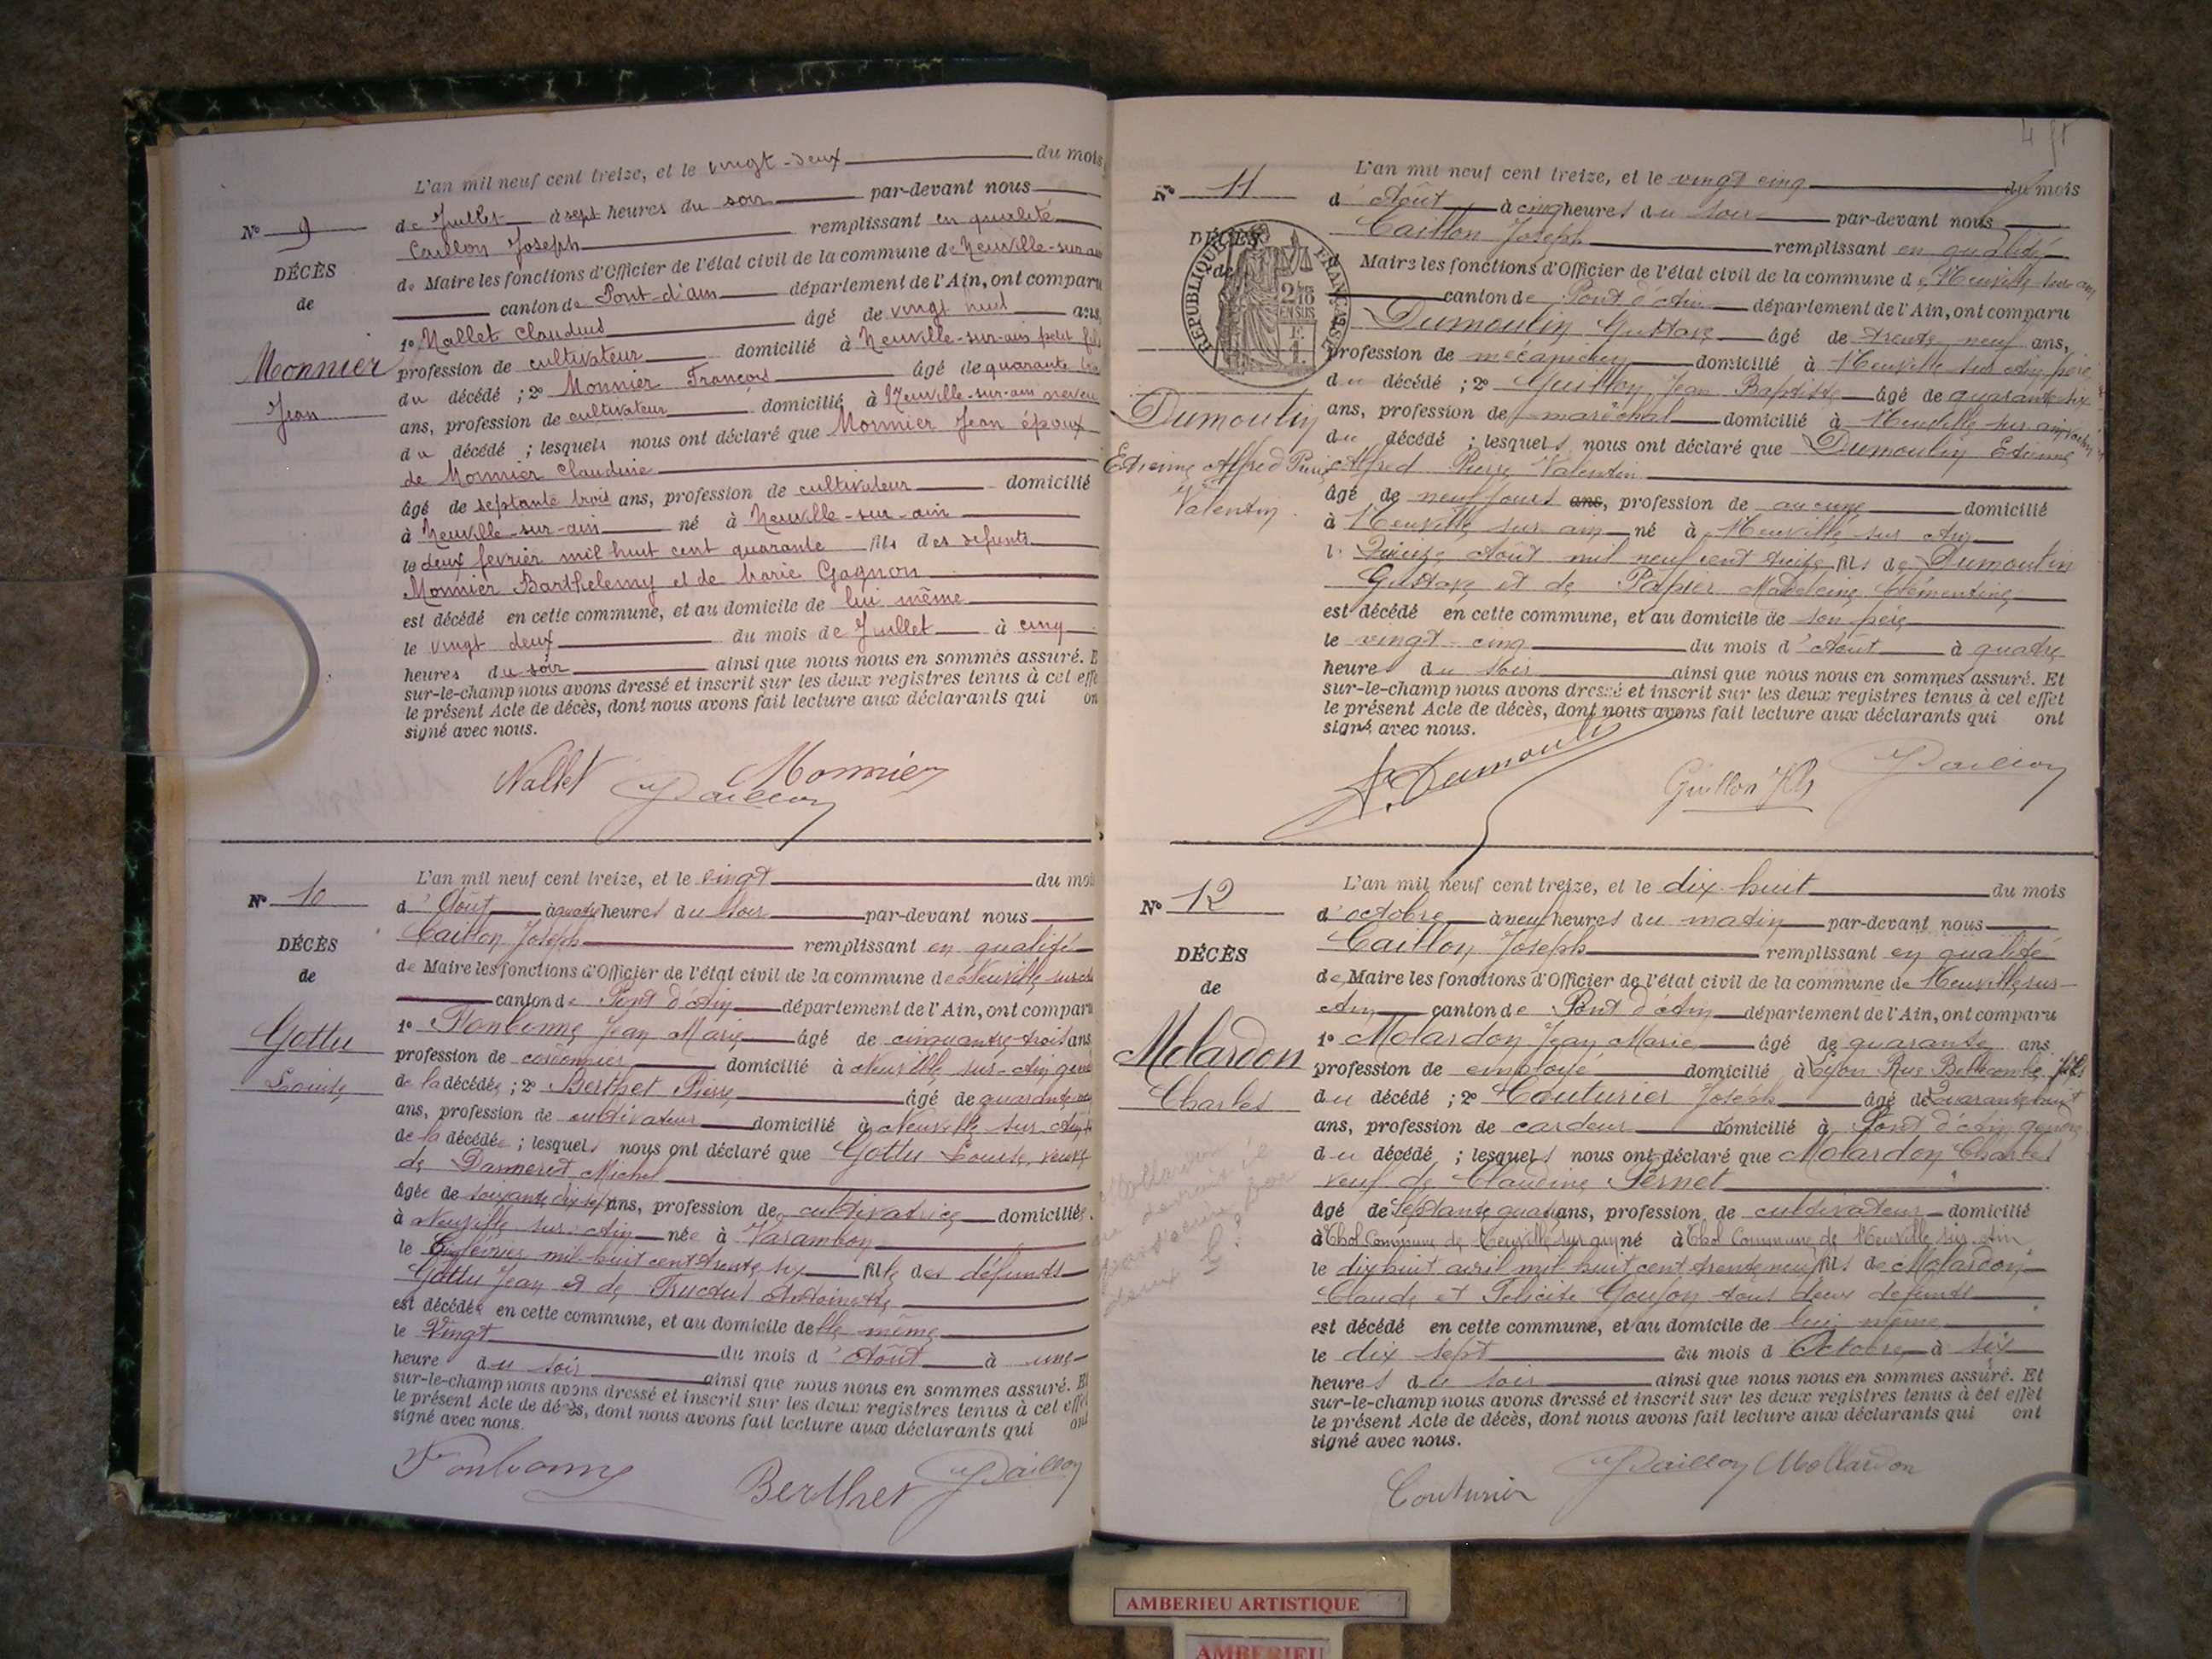 L'an mil neuf cent treize, et le vingt-deux du mois
de Juillet à sept heures du soir par-devant nous
Nº 9
Caillon Joseph remplissant en qualité
DÉCÈS
de Maire les fonctions d'Officier de l'état civil de la commune de Neuville-sur-ain
de
canton de Pont-d'ain département de l'Ain, ont comparu
1º Nallet Claudius âgé de vingt huit ans,
Monnier
profession de cultivateur domicilié à Neuville-sur-ain petit fils
Jean
du décédé ; 2º Monnier François âgé de quarante
ans, profession de cultivateur domicilié à Neuville-sur-ain neveu
du décédé ; lesquels nous ont déclaré que Monnier Jean époux
de Monnier Claudine
âgé de septante trois ans, profession de cultivateur domicilié
à Neuville-sur-ain né à Neuville-sur-ain
le deux fevrier mil huit cent quarante fils des defunts
Monnier Barthelemy et de Marie Gagnon
est décédé en cette commune, et au domicile de lui même
le vingt deux du mois de Juillet à cinq
heures du soir ainsi que nous nous en sommes assuré. E
sur-le-champ nous avons dressé et inscrit sur les deux registres tenus à cet effe
le présent Acte de décès, dont nous avons fait lecture aux déclarants qui on
signé avec nous.
Nallet Monnier
JCaillon
L'an mil neuf cent treize, et le vingt du moi
Nº 10
d'Août à quatre heures du soir par-devant nous
Caillon Joseph remplissant en qualité
DÉCÈS
de Maire les fonctions d'Officier de l'état civil de la commune de Neuville sur
de
canton de Pont d'Ain département de l'Ain, ont comparu
1º Fonbonne Jean Marie âgé de cinquante-trois ans
Gottu
profession de cordonnier domicilié à Neuville sur-Ain
Louise
de la décédée ; 2º Berthet Pierre âgé de quarante
ans, profession de cultivateur domicilié à Neuville sur Ain
de la décédée ; lesquels nous ont déclaré que Gottu Louise, veuve
de Dameret Michel
âgée de soixante dix sept ans, profession de cultivatrice domiciliée
à Neuville sur-Ain née à Varambon
le février mil-huit cent trente six fille des défunts
Gottu Jean et de Fructus Antoinette
est décédée en cette commune, et au domicile de elle même
le Vingt du mois d'Août à une
heure du soir ainsi que nous nous en sommes assuré. Et
sur-le-champ nous avons dressé et inscrit sur les deux registres tenus à cet effet
le présent Acte de décès, dont nous avons fait lecture aux déclarants qui ont
signé avec nous.
Fonbonne
Berthet JCaillon
4
L'an mil neuf cent treize, et le vingt cinq du mois
Nº 11
d'Août à cinq heures du soir par-devant nous
Caillon Joseph remplissant en qualité
DÉCÈS
de
RÉPUBLIQUE FRANÇAISE
2/10 EN SUS
1 F.
d Maire les fonctions d'Officier de l'état civil de la commune de Neuville sur ain
canton de Pont d'Ain département de l'Ain, ont comparu
Dumoulin Gustave âgé de trente neuf ans,
profession de mécanicien domicilié à Neuville sur Ain père
du décédé ; 2º Guillon Jean Baptiste âgé de quarante six
Dumoulin
ans, profession de maréchal domicilié à Neuville sur ain
du décédé ; lesquels nous ont déclaré que Dumoulin Etienne
Etienne Alfred Pierre
Alfred Pierre Valentin
Valentin
âgé de neuf jours ans, profession de aucune domicilié
à Neuville sur ain né à Neuville sur Ain
Août mil neuf cent treize fils de Dumoulin
Gustave et de Papier Madeleine Clémentine
est décédé en cette commune, et au domicile de son père
le vingt-cinq du mois d'Août à quatre
heures du soir ainsi que nous nous en sommes assuré. Et
sur-le-champ nous avons dressé et inscrit sur les deux registres tenus à cet effet
le présent Acte de décès, dont nous avons fait lecture aux déclarants qui ont
signé avec nous.
Dumoulin Guillon JCaillon
L'an mil neuf cent treize, et le dix huit du mois
Nº 12
d'octobre à neuf heures du matin par-devant nous
Caillon Joseph remplissant en qualité
DÉCÈS
de Maire les fonctions d'Officier de l'état civil de la commune de Neuville sur-
de
Ain canton de Pont d'Ain département de l'Ain, ont comparu
1º Molardon Jean Marie âgé de quarante ans
Molardon
profession de employé domicilié à Lyon Rue Bellecombe fils
Charles
du décédé ; 2º Couturier Joseph âgé de Quarante huit
ans, profession de cardeur domicilié à Pont d'Ain gendre
du décédé ; lesquels nous ont déclaré que Molardon Charles
veuf de Claudine Pernet
âgé de Septante quatre ans, profession de cultivateur domicilié
à Thol Commune de Neuville sur ain né à Thol Commune de Neuville sur Ain
le dix huit avril mil huit cent trente neuf fils de Molardon
Claude et Félicité Goujon tous deux defunts
est décédé en cette commune, et au domicile de lui-même
le dix sept du mois d Octobre à six
heures du soir ainsi que nous nous en sommes assuré. Et
sur-le-champ nous avons dressé et inscrit sur les deux registres tenus à cet effet
le présent Acte de décès, dont nous avons fait lecture aux déclarants qui ont
signé avec nous.
JCaillon Mollardon
Couturier
AMBERIEU ARTISTIQUE
AMBERIEU